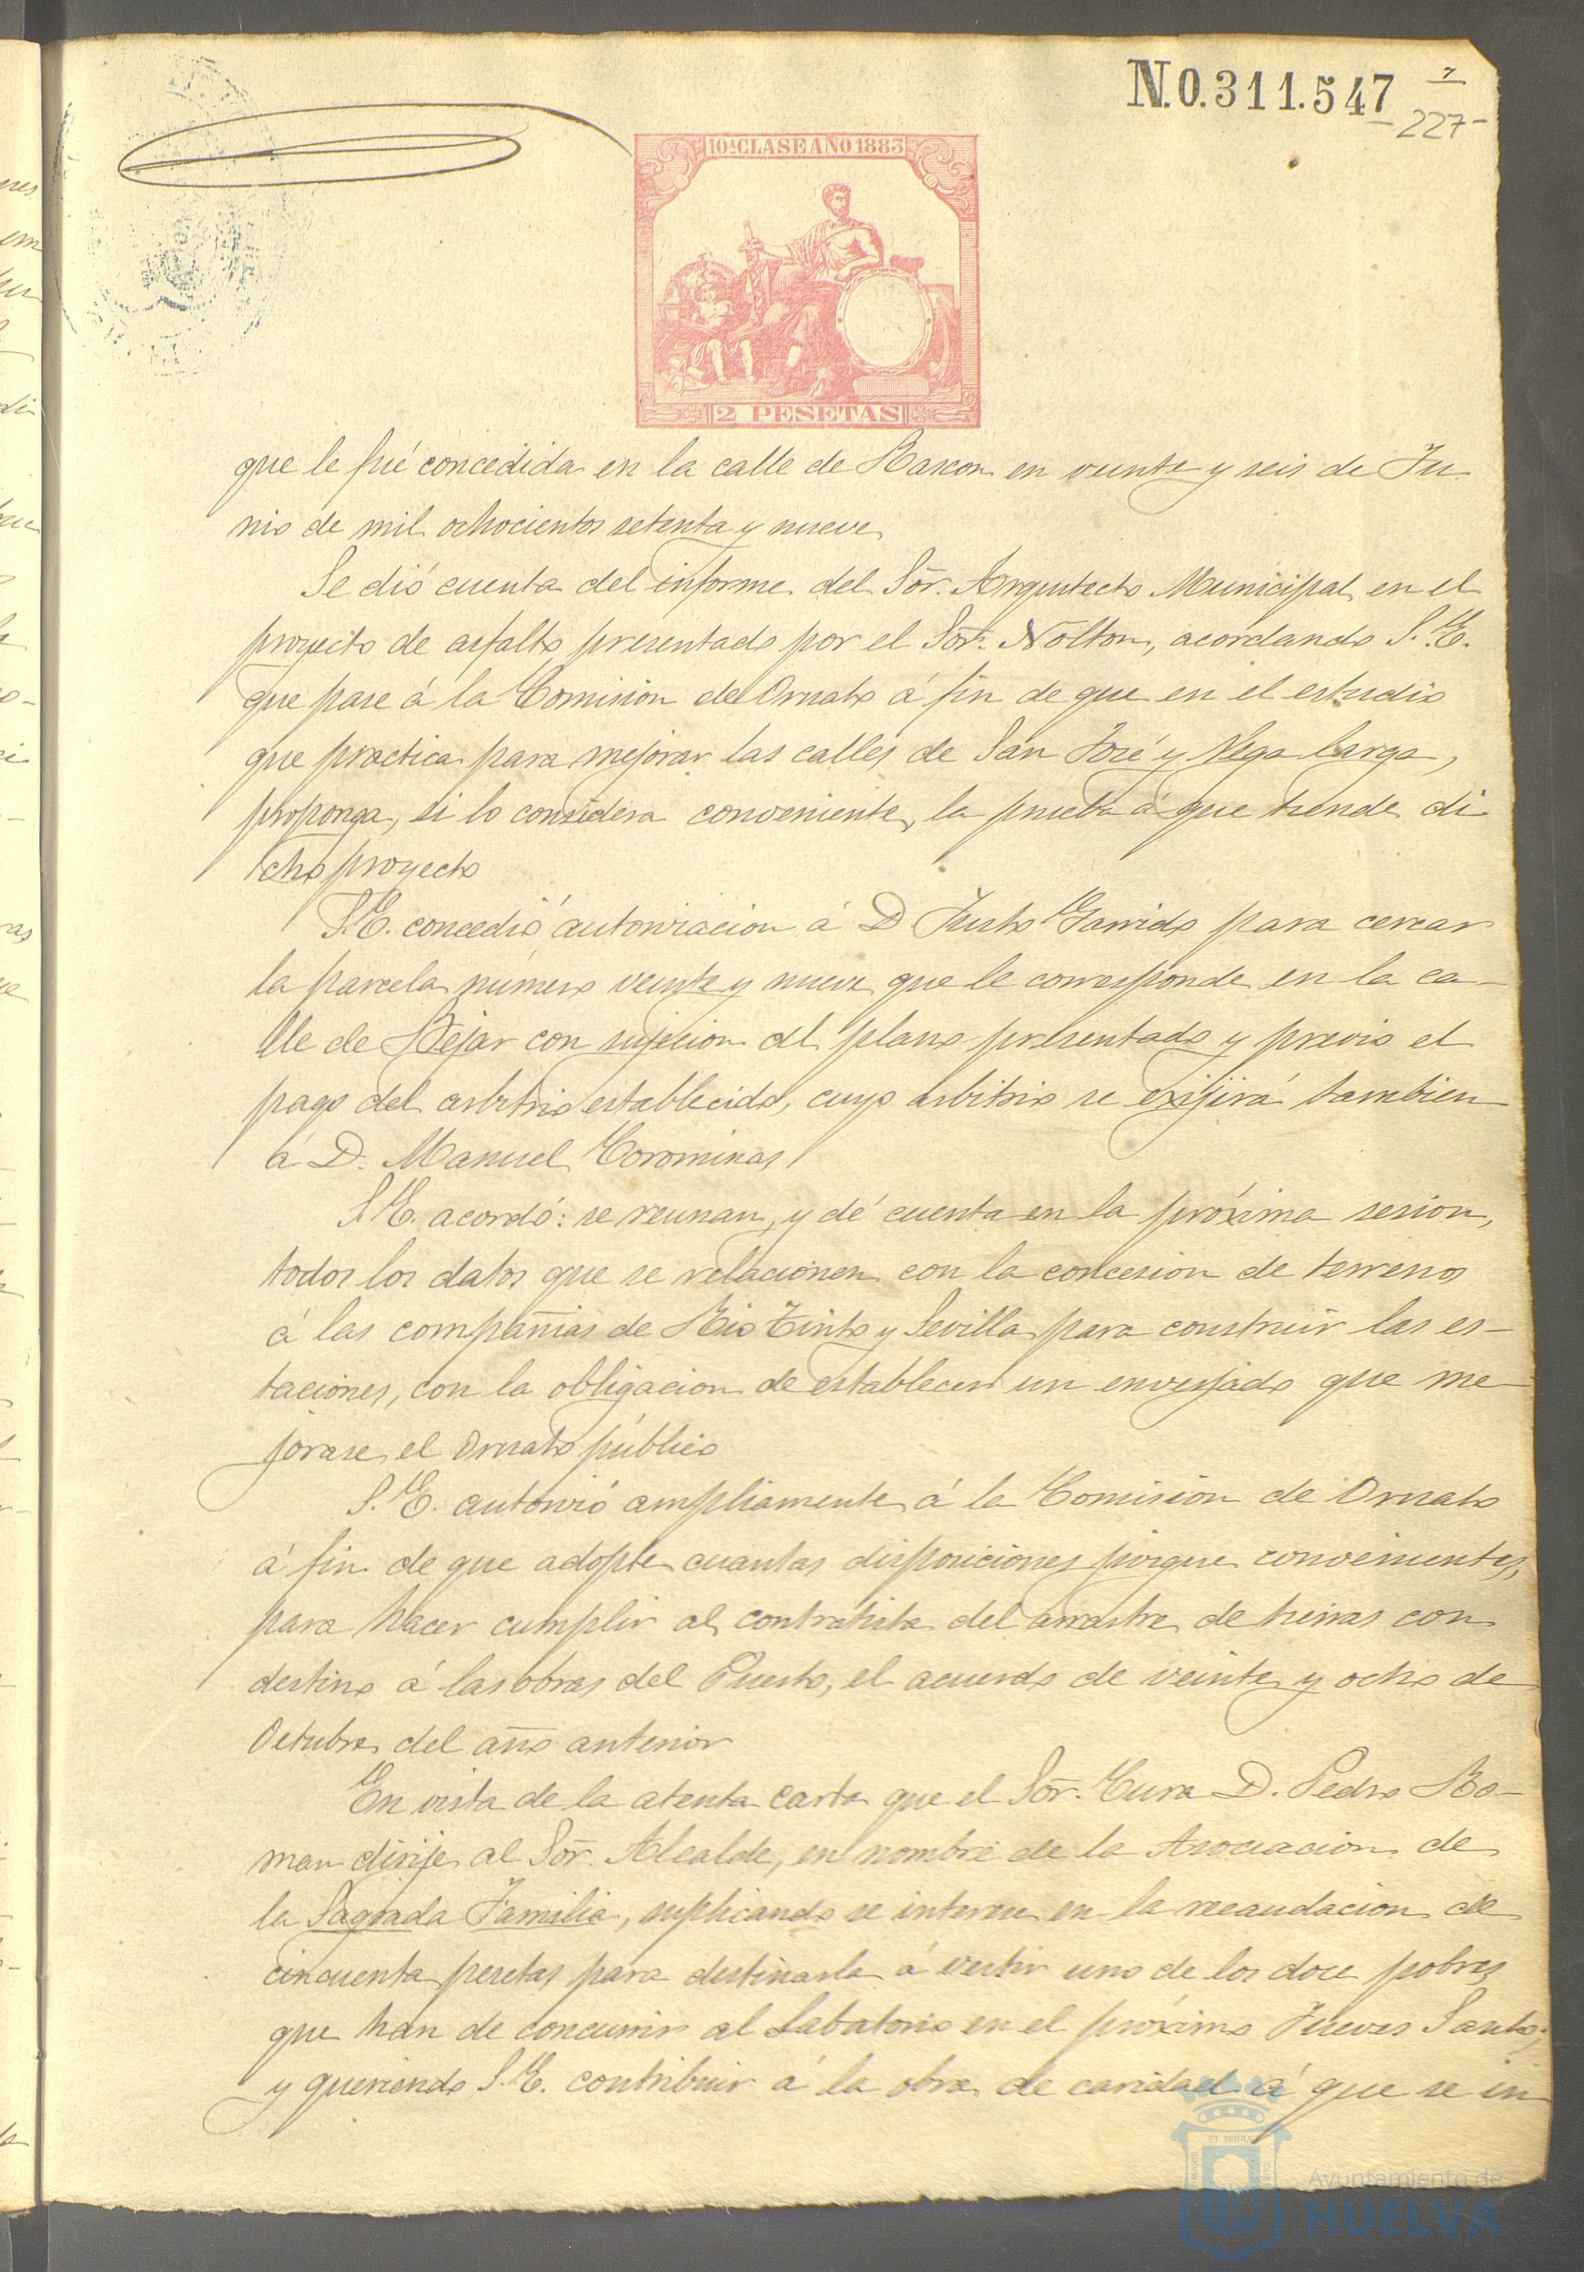 N.0.311.547
7
227
10ª CLASE AÑO 1883
2 PESETAS
que le fué concedida en la calle de Rascon en veinte y seis de Ju
nio de mil ochocientos setenta y nueve
Se dió cuenta del informe del Sõr. Arquitecto Municipal en el
proyecto de asfalto presentado por el Sõr. Nolton, acordando S. E.
que pase á la Comision de Ornato á fin de que en el estudio
que practica para mejorar las calles de San José y Vega larga,
proponga, si lo considera conveniente, la prueba á que tiende di
cho proyecto
S. E. concedió autorizacion á D Justo Garrido para cercar
la parcela número veinte y nueve que le corresponde en la ca-
lle de Béjar con sujecion al plano presentado y previo el
pago del arbitrio establecido, cuyo arbitrio se exijirá tambien
á D. Manuel Corominas
S. E. acordó: se reunan, y dé cuenta en la próxima sesion,
todos los datos que se relacionen con la concesion de terrenos
á las compañias de Rio Tinto y Sevilla para construir las es-
taciones, con la obligacion de establecer un enverjado que me
jorase el Ornato público
S. E. autorizó ampliamente á la Comision de Ornato
á fin de que adopte cuantas disposiciones juzgue convenientes,
para hacer cumplir al contratista del arrastre de tierras con
destino á las obras del Puerto, el acuerdo de veinte y ocho de
Octubre del año anterior
En vista de la atenta carta que el Sõr. Cura D. Pedro Ro-
man dirije al Sõr. Alcalde, en nombre de la Asociacion de
la Sagrada Familia, suplicando se interese en la recaudacion de
cincuenta pesetas para destinarla á vestir uno de los doce pobres
que han de concurrir al Labatorio en el próximo Jueves Santo;
y queriendo S. E. contribuir á la obra de caridad á que se in
Ayuntamiento de
HUELVA